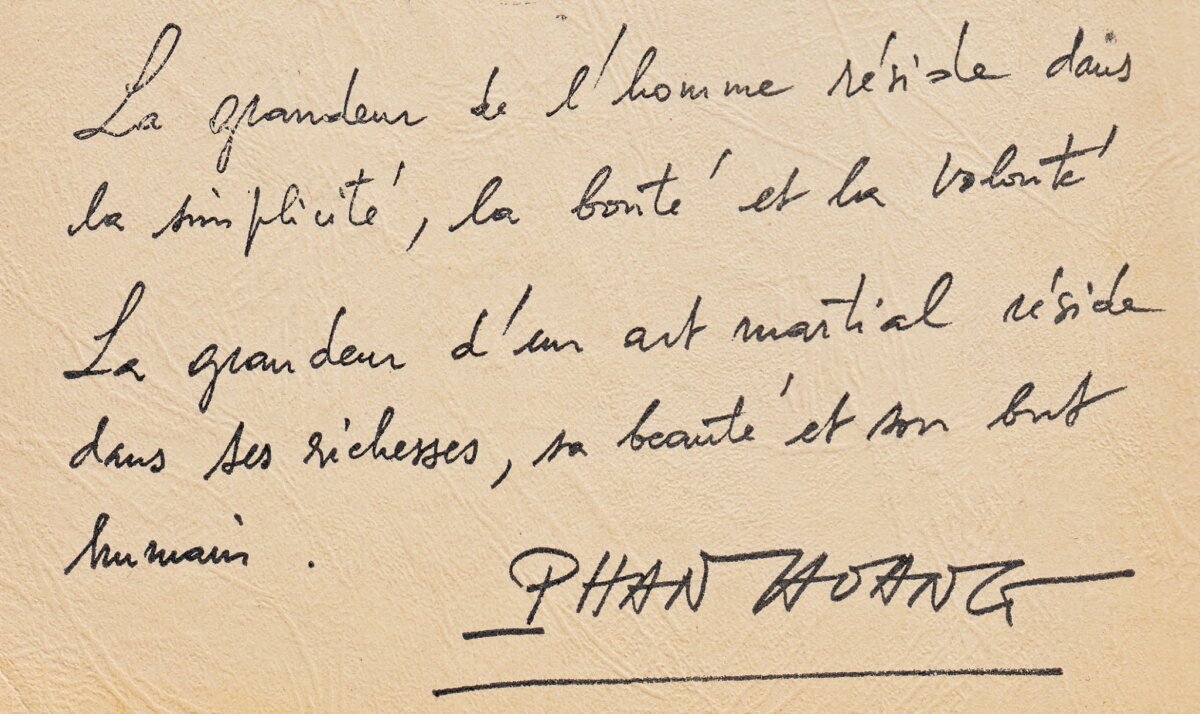 La grandeur de l'homme réside dans
la simplicité, la bonté et la volonté
La grandeur d'un art martial réside
dans ses richesses, sa beauté et son but
humain .
PHAN HOANG